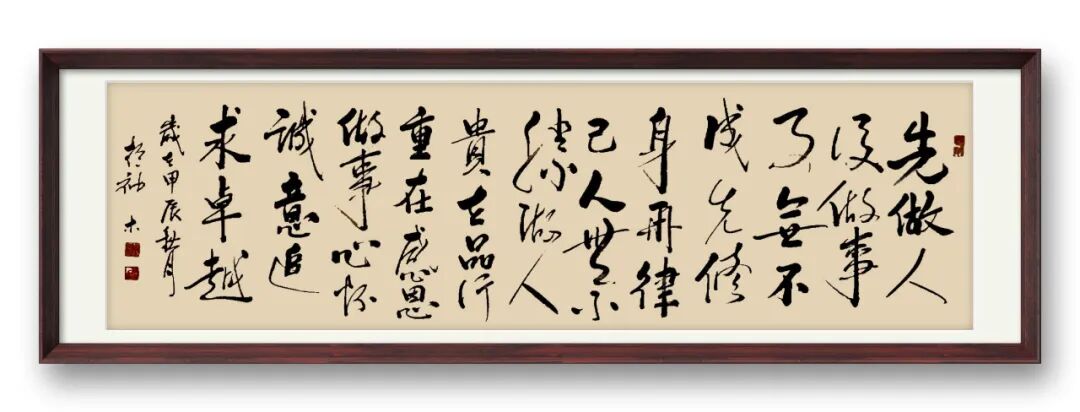 先做人
後做事
事無不
成先修
身再律
己人無不
勝做人
貴在品行
重在感恩
做事心怀
誠意追
求卓越
歲在甲辰秋月